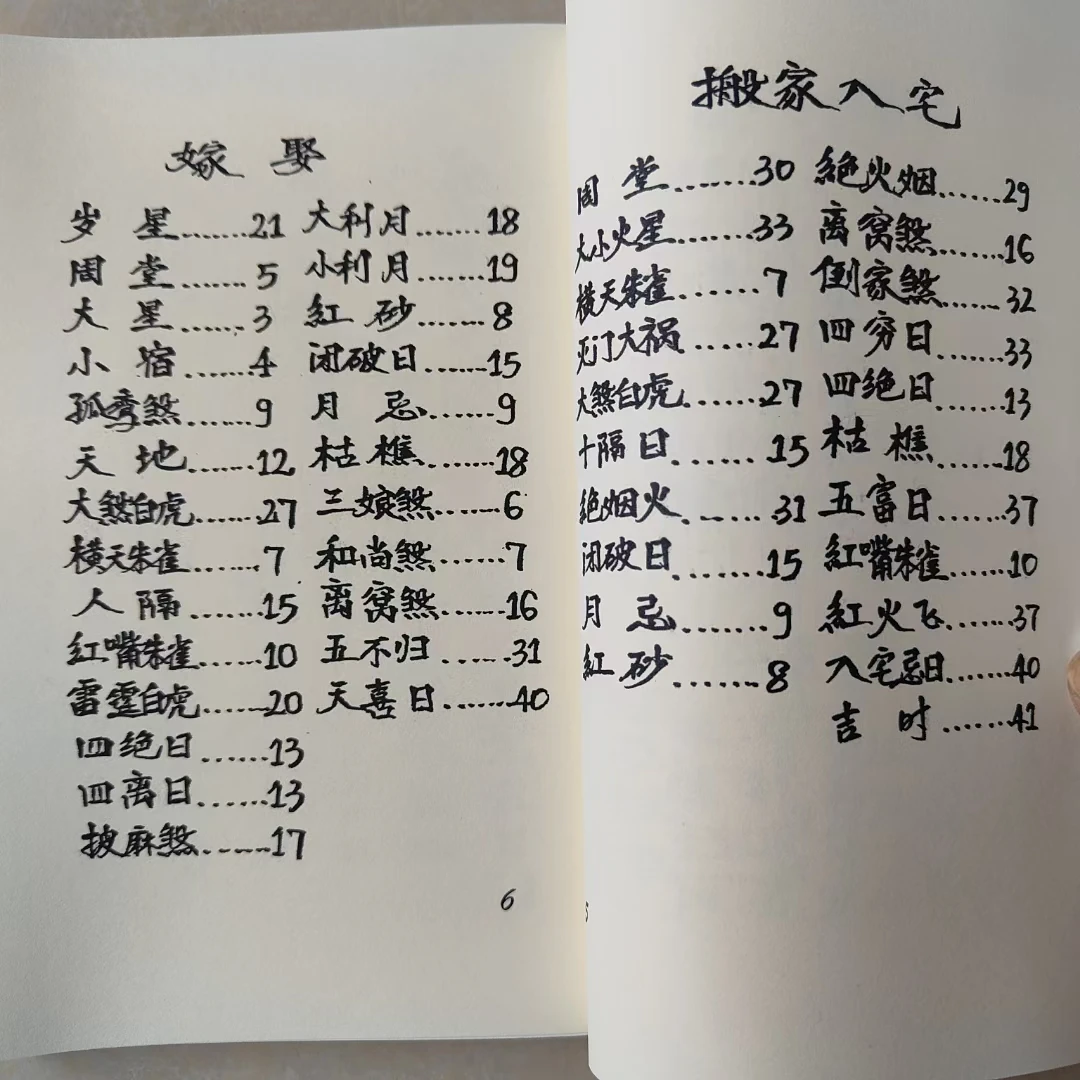 嫁 娶
岁 星.......21 大利月.......18
周 堂......5 小利月.......19
大 星......3 紅 砂.......8
小 宿......4 闭破日......15
孤鸾煞......9 月 忌......9
天 地......12 枯 樵......18
大煞白虎......27 三娘煞......6
横天朱雀......7 和尚煞......7
人 隔......15 离窩煞......16
紅嘴朱雀......10 五不归......31
雷霆白虎......20 天喜日......40
四绝日......13
四离日......13
披麻煞......17
6
搬家入宅
周 堂.......30 絶火烟......29
大小火星.......33 离窩煞......16
横天朱雀......7 倒家煞......32
死门大祸......27 四穷日......33
大煞白虎......27 四绝日......13
十隔日......15 枯 樵......18
絶烟火......31 五富日......37
闭破日......15 紅嘴朱雀......10
月 忌.......9 紅火飞......37
紅 砂......8 入宅忌日......40
吉 时......41